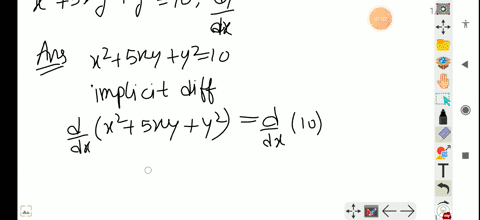 x²+5xy+y²=10, dy/dx
Ans x²+5xy+y²=10
implicit diff
d/dx (x²+5xy+y²) = d/dx (10)
T